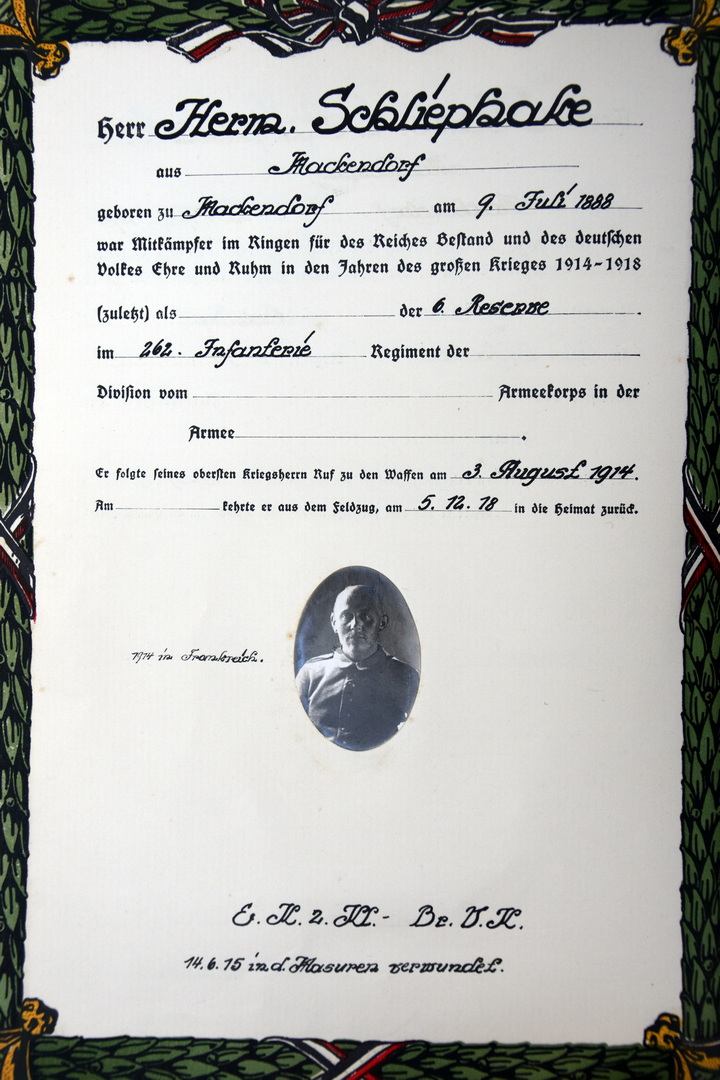 Herr Herm. Schliephake
aus Mackendorf
geboren zu Mackendorf am 9. Juli 1888
war Mitkämpfer im Ringen für des Reiches Bestand und des deutschen
Volkes Ehre und Ruhm in den Jahren des großen Krieges 1914-1918
(zuletzt) als der 6. Reserve.
im 262. Infanterie Regiment der
Division vom Armeekorps in der
Armee.
Er folgte seines obersten Kriegsherrn Ruf zu den Waffen am 3. August 1914.
Am kehrte er aus dem Feldzug, am 5. 12. 18 in die Heimat zurück.
1914 in Frankreich.
E. K. 2. Kl. - Br. V. K.
14. 6. 15 in d. Masuren verwundet.